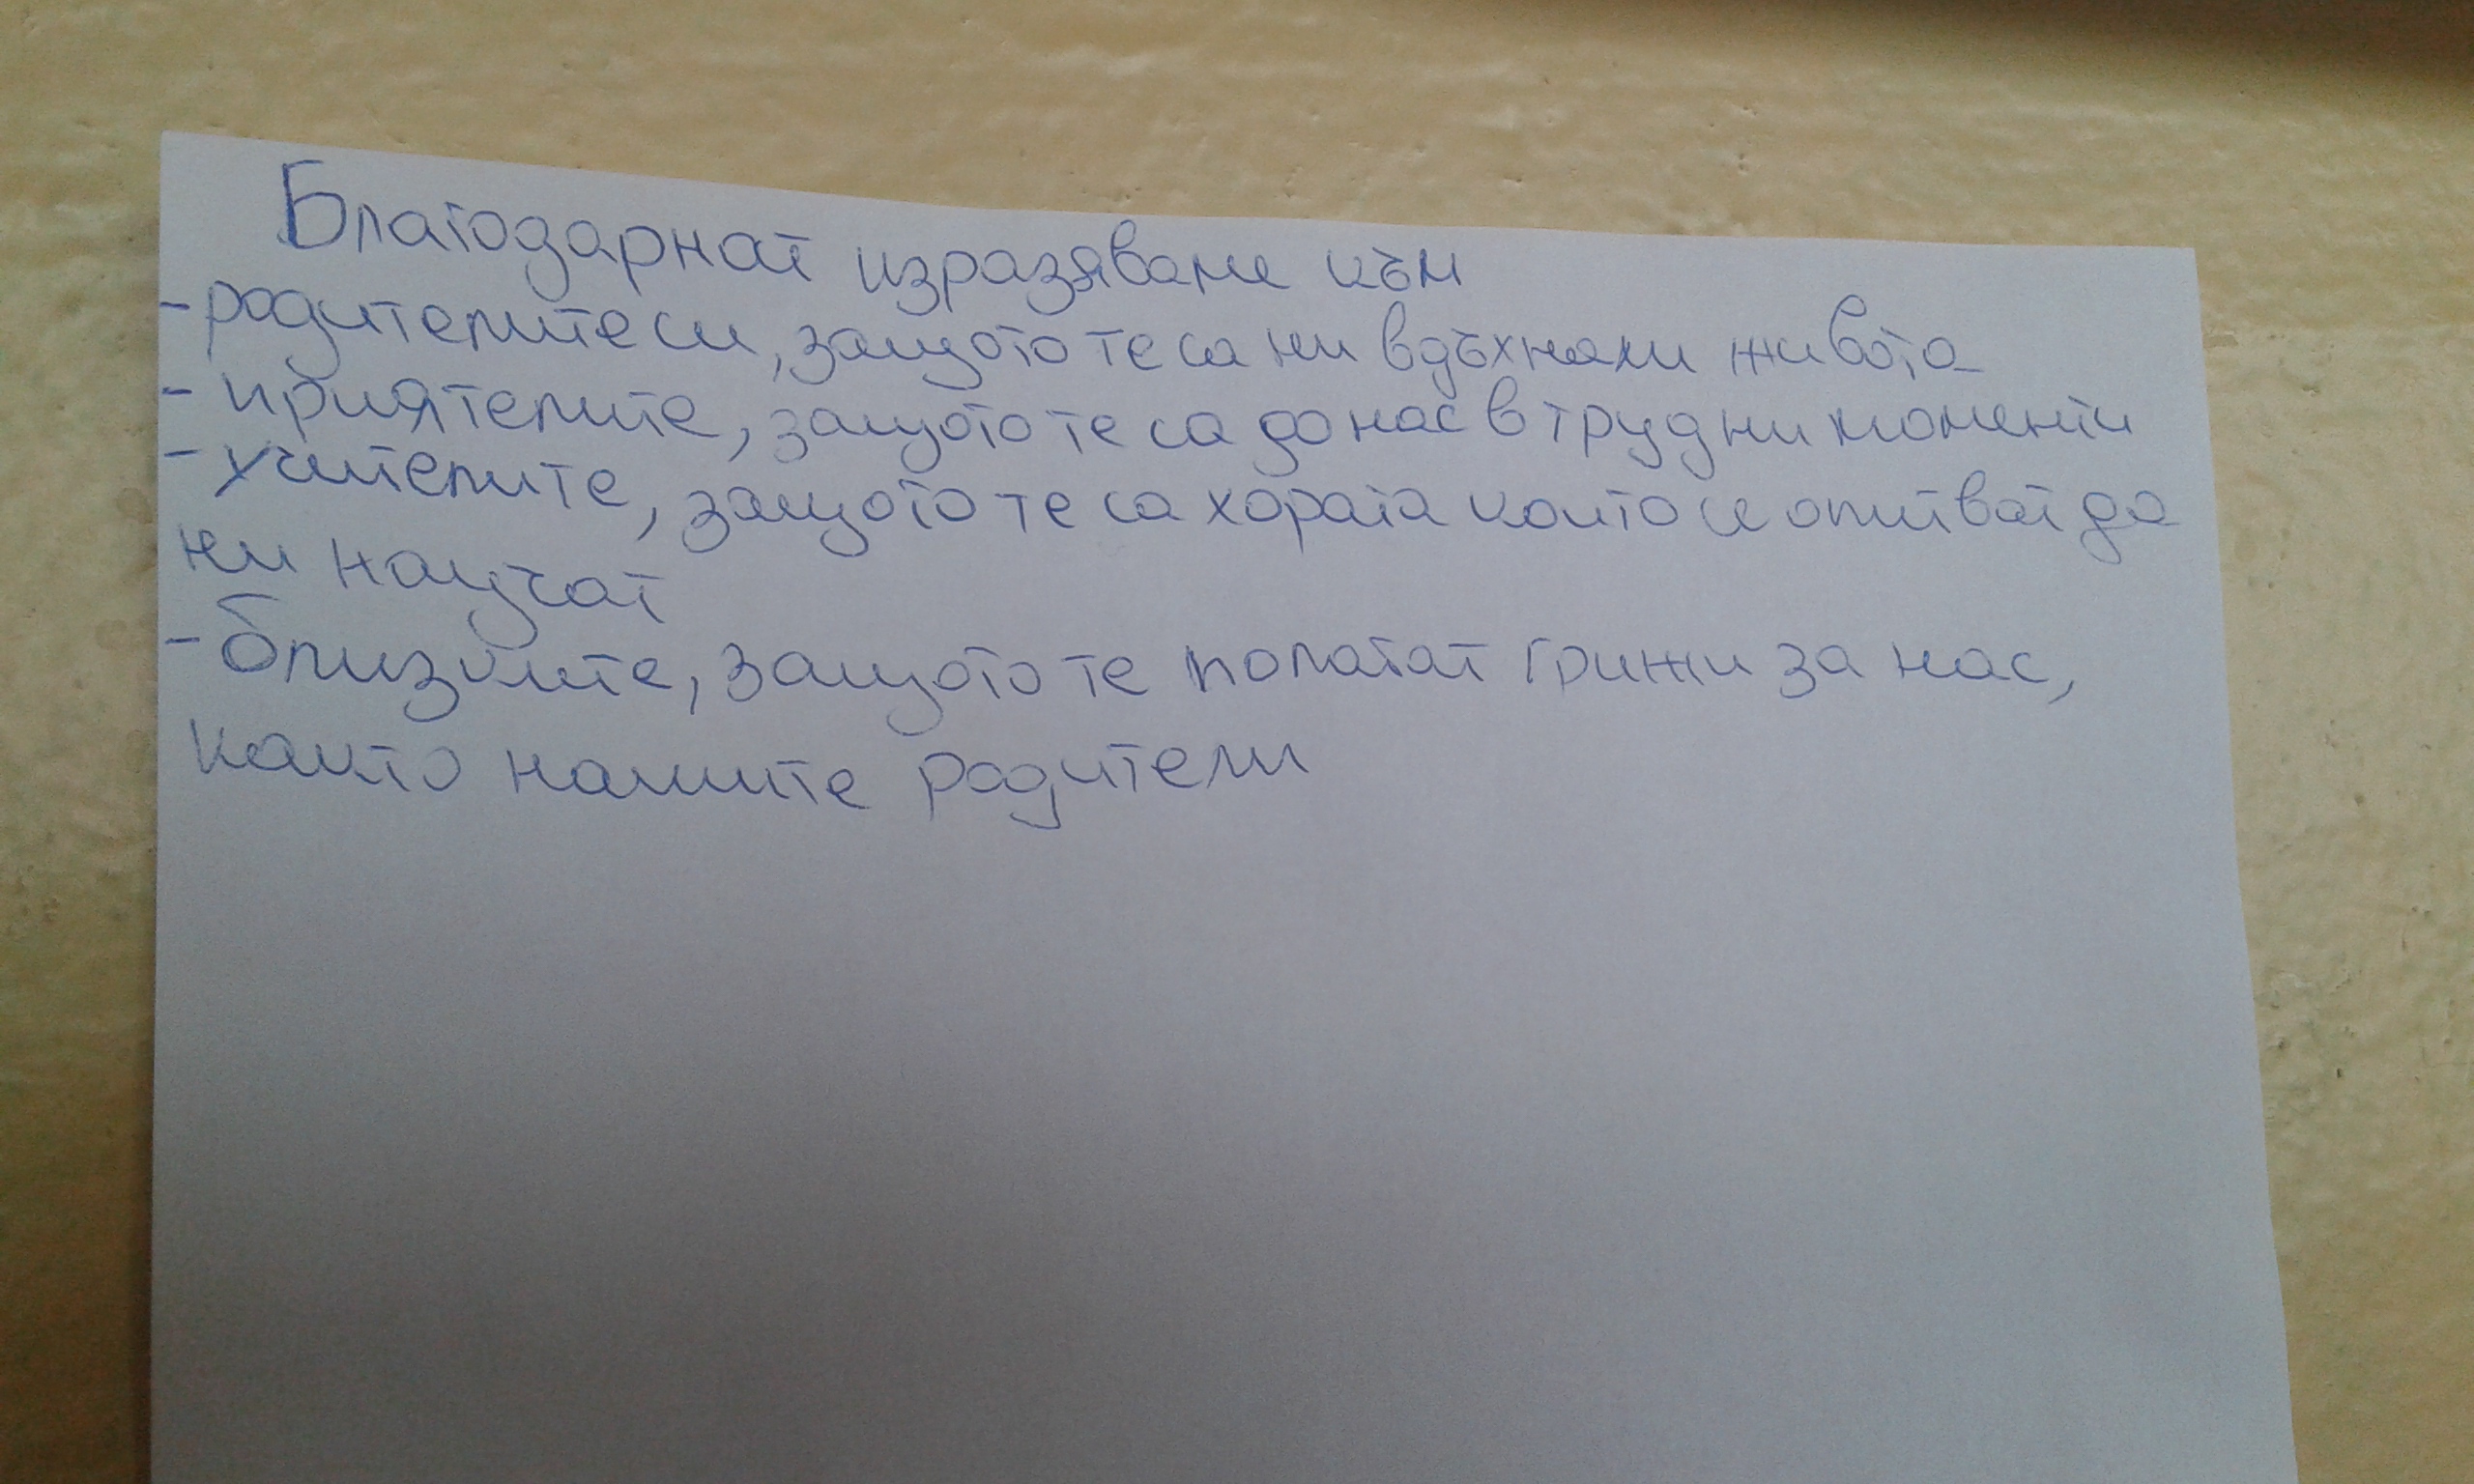 Благодарнат изразяваме към
- родителите си, защото те са ни вдъхнали живота
- приятелите, защото те са до нас в трудни моменти
- учителите, защото те са хората които се опитват да
ни научат
- близките, защото те полагат грижи за нас,
както нашите родители